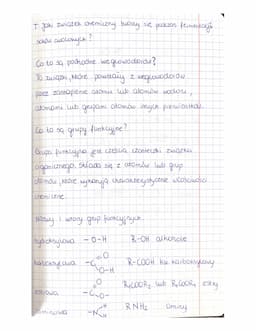 + Jaki związek chemiczny tworzy się podczas fermentacji
soków owocowych?
Co to są pochodne węglowodorów?
To związki, które powstały z węglowodorów
przez zastąpienie atomu lub atomów wodoru,
atomami lub grupami atomów innych pierwiastków.
Co to są grupy funkcyjne?
Grupa funkcyjna jest częścią cząsteczki związku
organicznego. Składa się z atomów lub grup
atomów, które wykazują charakterystyczne właściwości
chemiczne.
Nazwy i wzory grup funkcyjnych.
hydroksylowa -O-H R-OH alkohole
karboksylowa -C O O-H R-COOH kw. karboksylowy
-C O O- R₁COOR₂ lub R₂COOR₁ estry
-N H RNH₂ aminy